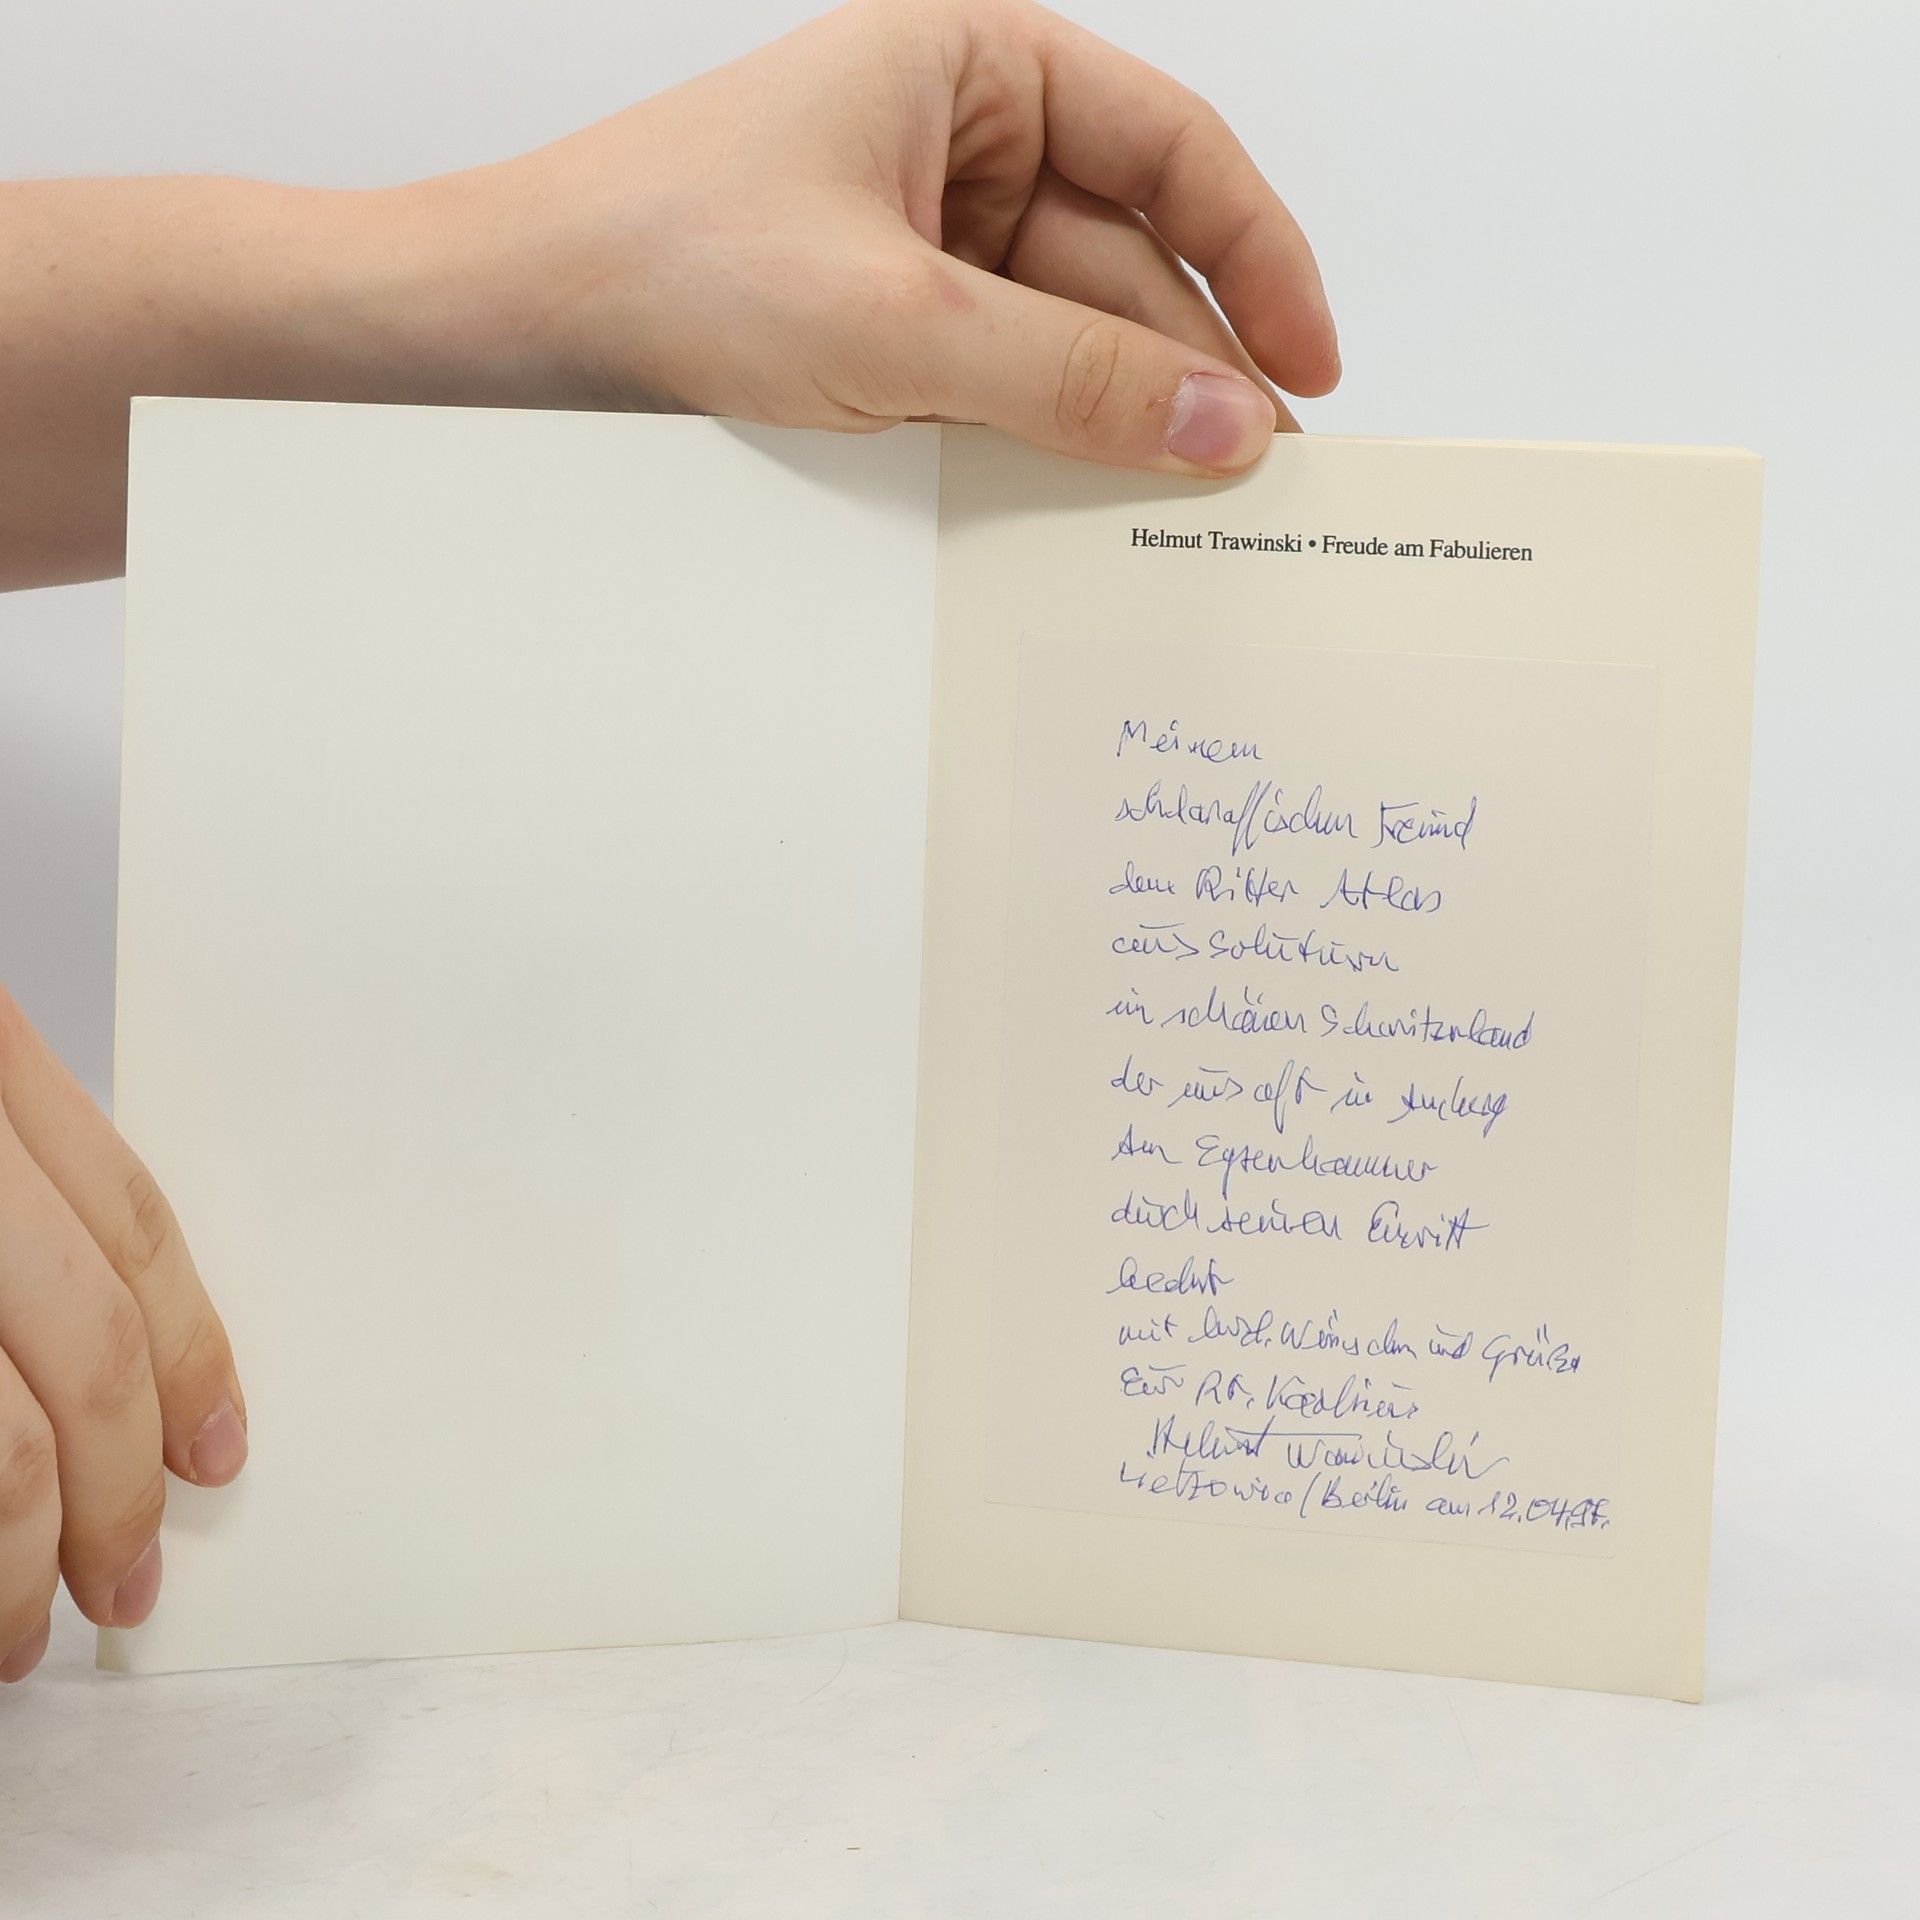 Helmut Trawinski • Freude am Fabulieren
Meinem
schlaraffischen Freund
dem Ritter Atlas
aus Soluturn
im schönen Schwitzerland
der uns oft in
Am Eysenhammer
durch seinen Einritt
beehrt
mit herzl. Wünschen und Grüßen
Eur Rt.
Helmut Trawinski
Lietzowia / Berlin am 12.04.97.